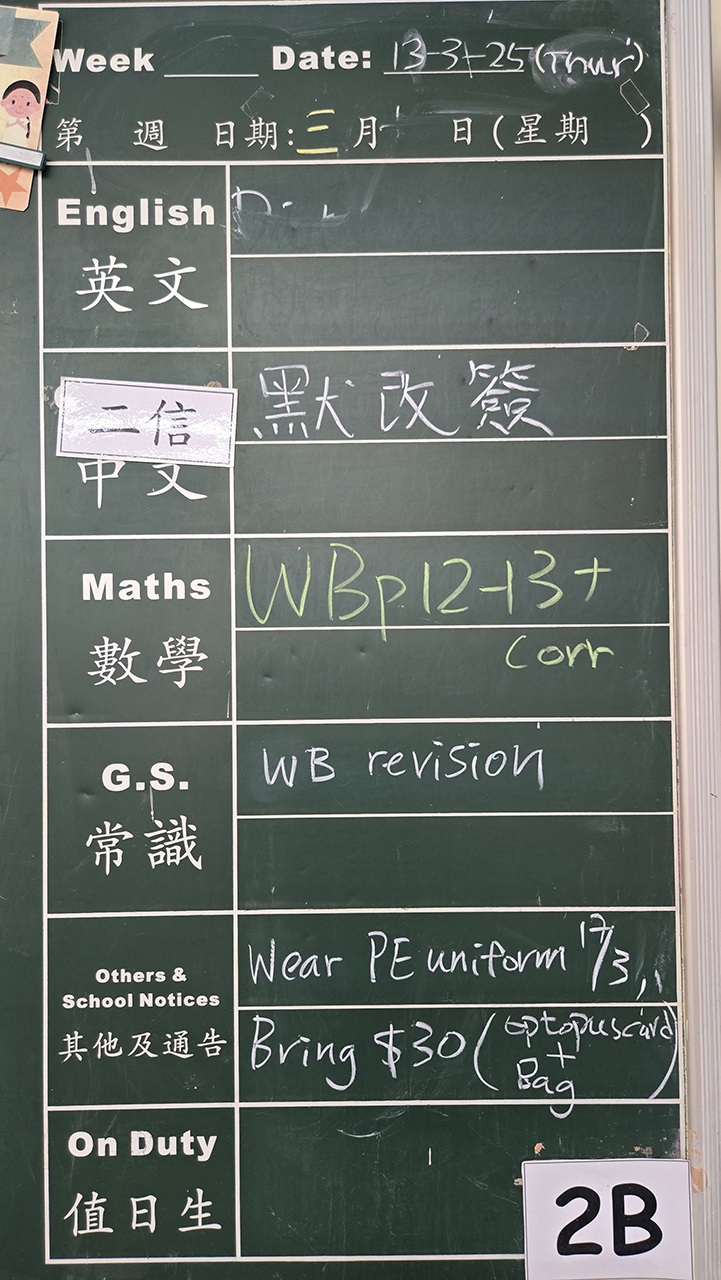 Week ____ Date: 13-3-25 (Thur)
第 週 日期: 三 月 日 (星期 )
English
英文
二信
中文
默改簽
Maths
數學
WBp12-13+
corr
G.S.
常識
WB revision
Others &
School Notices
其他及通告
Wear PE uniform 17/3,
Bring $30 (optopuscard
+
Bag)
On Duty
值日生
2B